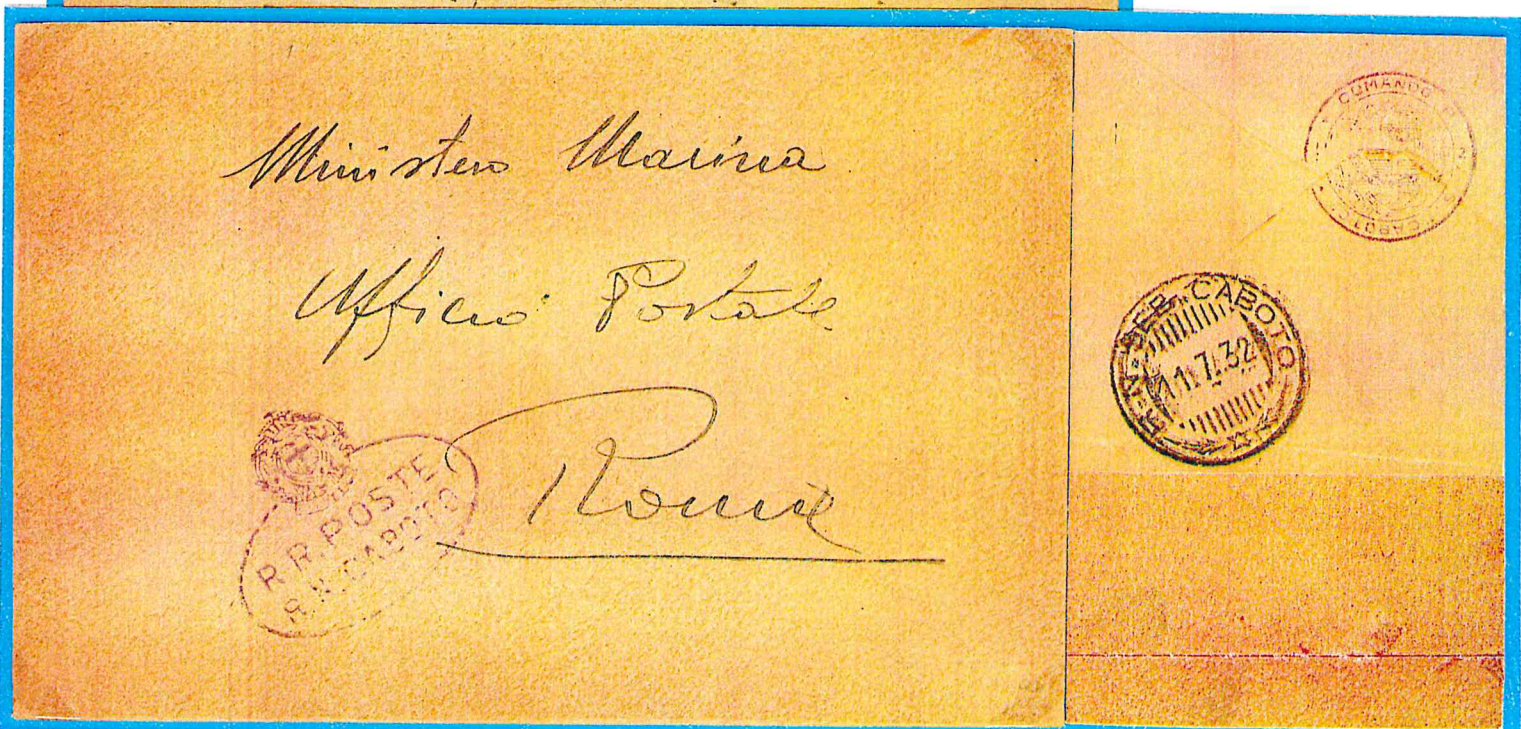 Ministero Marina
Ufficio Postale
Roma
R.R. POSTE
R.N. CABOTO
COMANDO R. N.
CABOTO
R. N. SEB. CABOTO
11.7.32